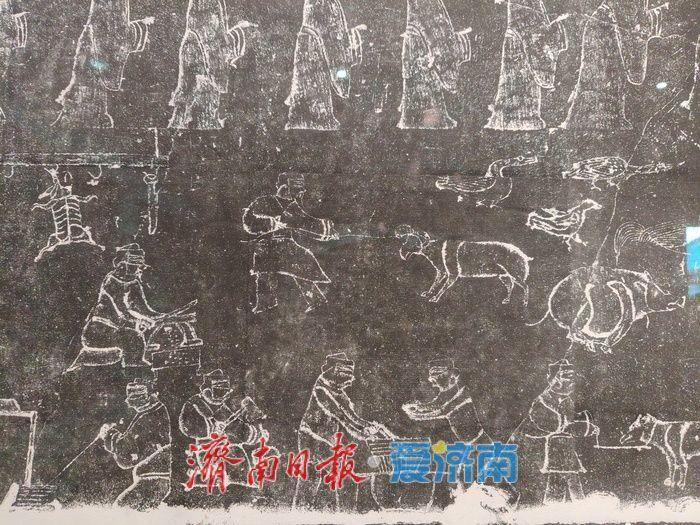 濟南日报
爱济南